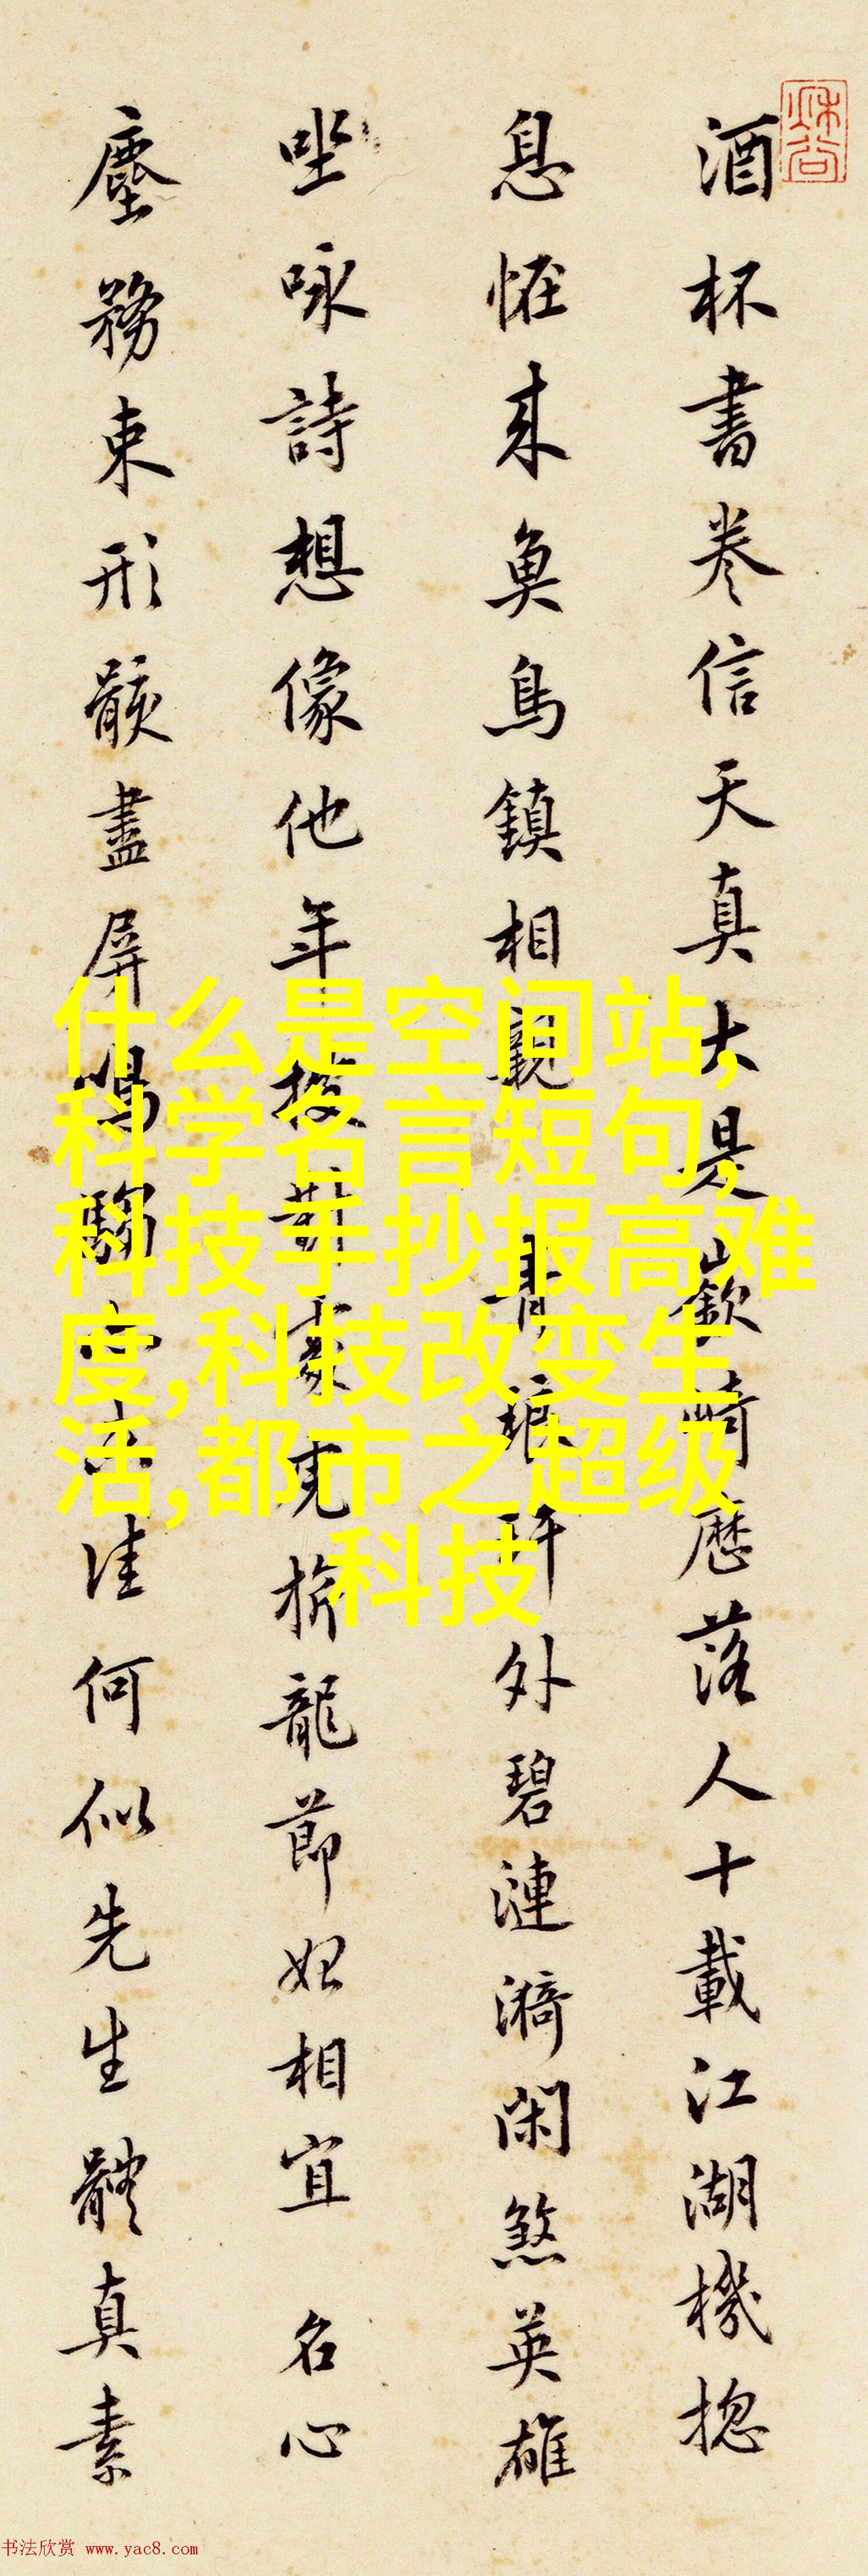 酒杯書卷信天真大是嶔崎歷落人十載江湖機摠
息恠來魚鳥鎮相親 青琅玕外碧漣漪閑煞英雄
坐咏詩想像他年 龍節好相宜 名心
塵務束形骸盡屏 佳何似先生體真素
什么是空间站,
科学名言短句,
科技手抄报高难
度,科技改变生
活,都市之超级
科技
书法欣赏 www.yac8.com